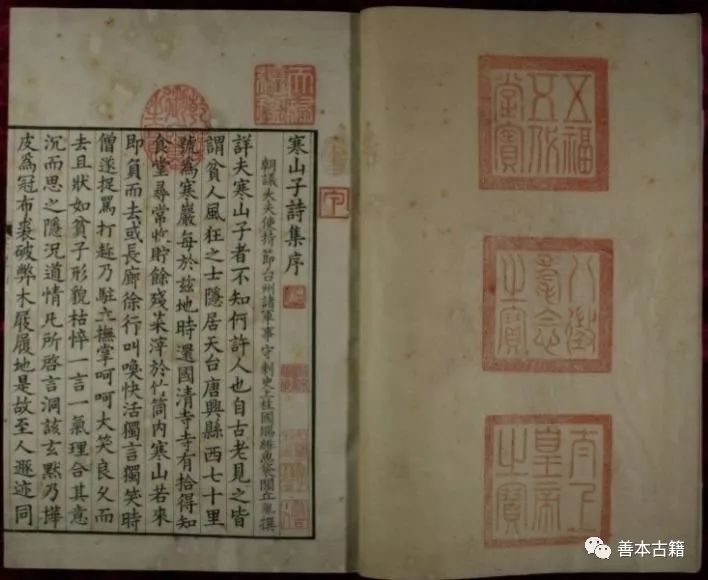 五福五代堂寶
八徵耄念之寶
太上皇帝之寶
天祿繼鑑
乾隆御覽之寶
寒山子詩集序
朝議大夫使持節台州諸軍事守刺史上柱國賜緋魚袋閭丘胤撰
詳夫寒山子者不知何許人也自古老見之皆
謂貧人風狂之士隱居天台唐興縣西七十里
號為寒巖每於兹地時還國清寺寺有拾得知
食堂尋常收貯餘殘菜滓於竹筒內寒山若來
即負而去或長廊徐行叫喚快活獨言獨笑時
僧遂捉罵打趂乃駐立撫掌呵呵大笑良久而
去且狀如貧子形貌枯悴一言一氣理合其意
沉而思之隱況道情凡所啓言洞該玄默乃樺
皮為冠布裘破弊木屐履地是故至人遯迹同
善本古籍